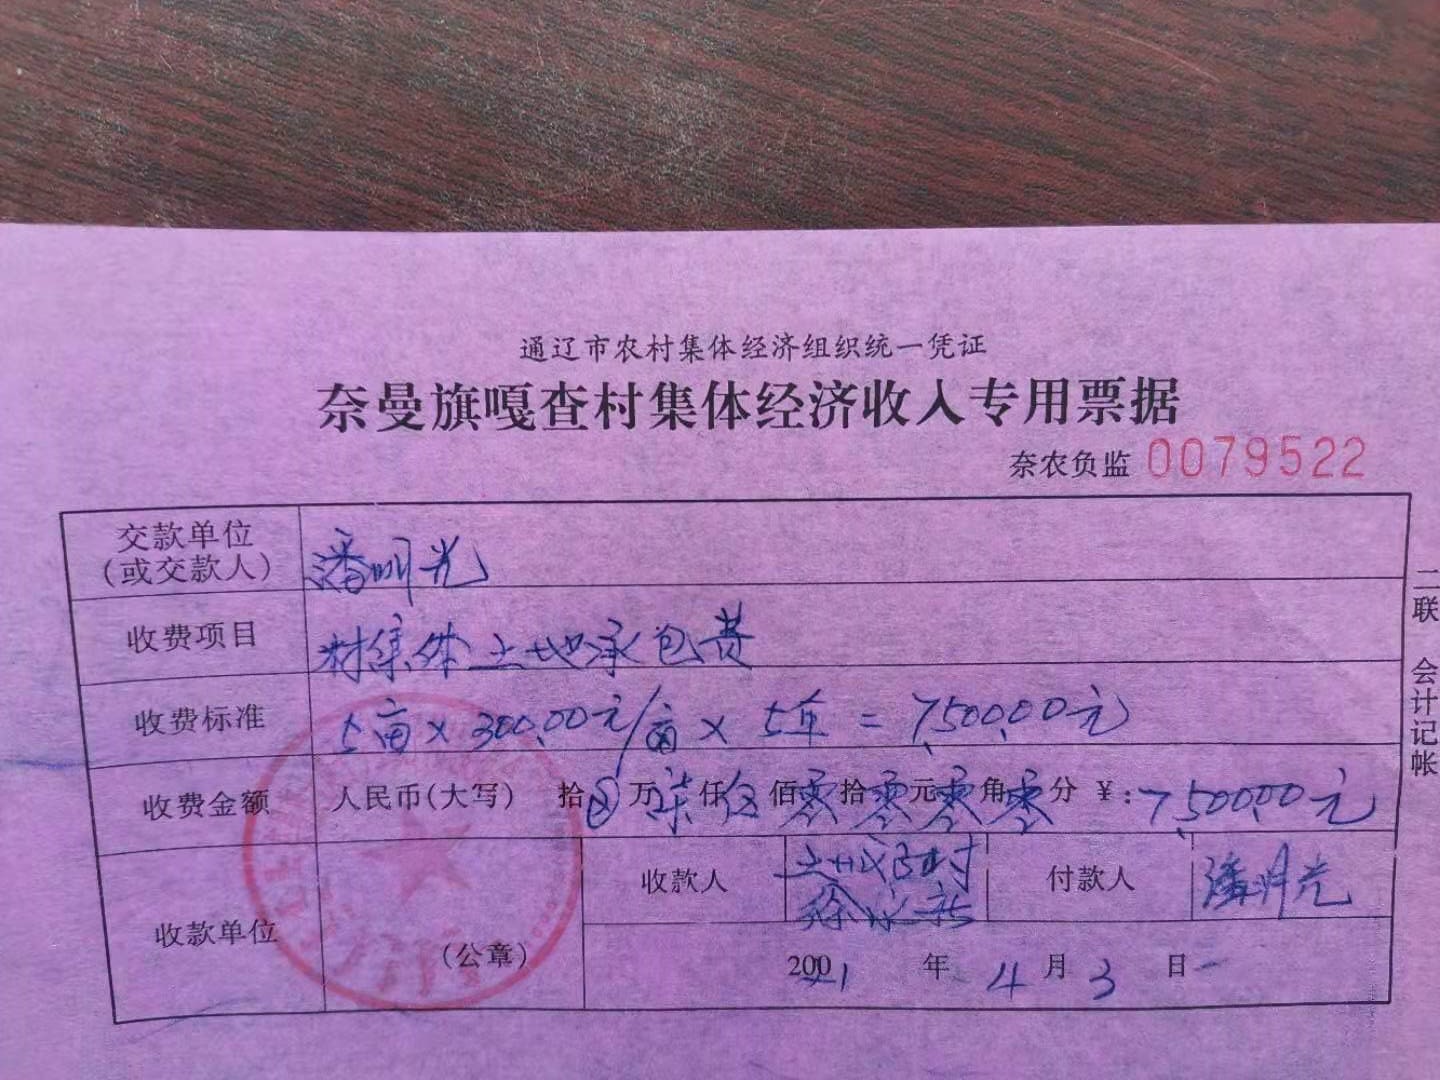 通辽市农村集体经济组织统一凭证
奈曼旗嘎查村集体经济收入专用票据
奈农负监 0079522
交款单位
(或交款人) 潘明光
收费项目 村集体土地承包费
收费标准 5亩×300.00元/亩×5年=7,500.00元
收费金额 人民币(大写) 拾⊗万柒仟伍佰零拾零元零角零分 ¥:7,500.00元
收款单位 (公章) 收款人 付款人 潘明光
2021年4月3日
二联 会计记帐